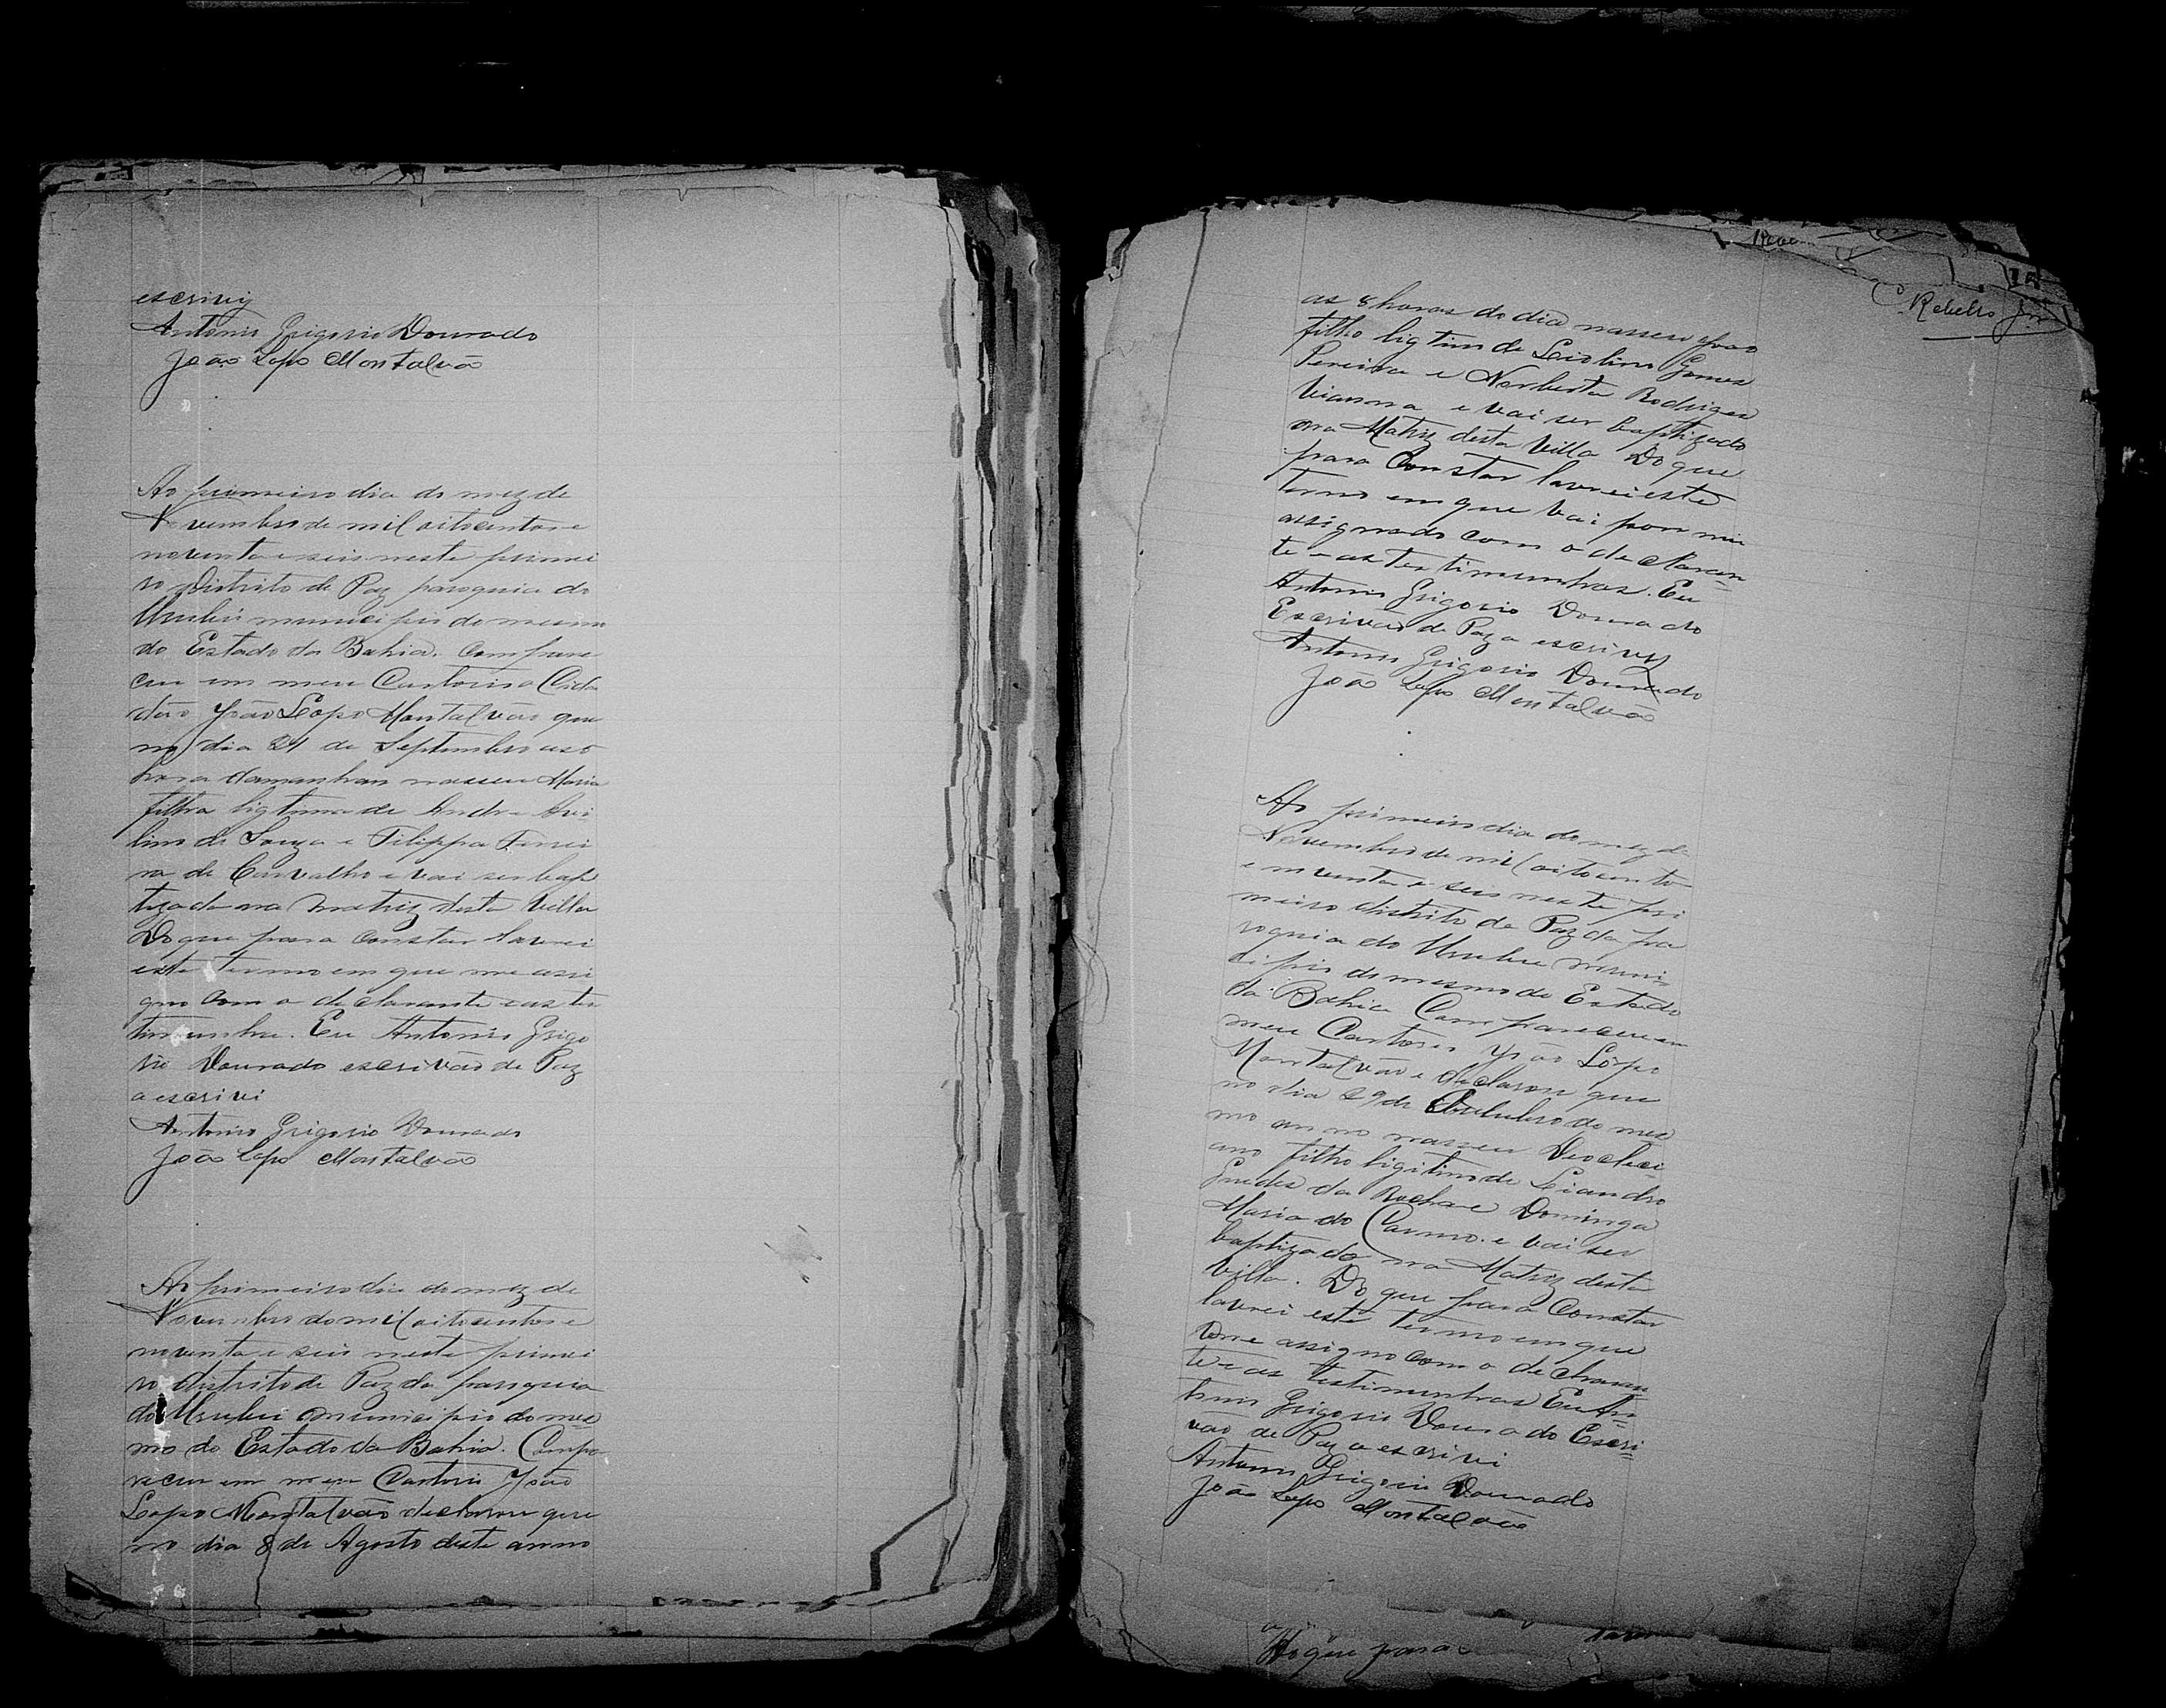 escrivij
Antonio Grigorio Dourado
João Lopo Montalvão
Ao primeiro dia do mez de
Novembro de mil oitocentos e
noventa e seis neste primei
ro Districto de Paz paroquia do
Urubu municipio do mesmo
do Estado da Bahia. Compare
ceu em meu Cartorio o Cida
dão João Lopo Montalvão que
no dia 21 de Septembro as 5
hora damanhan nasseu Maria
filha ligtima de Andre Ave
lino de Souza e Filippa Ferrei
ra de Carvalho e vai ser bap
tizada na Matriz desta Villa
Do que para constar lavrei
este termo em que me assi
gno com o declarante e as tes
timunha. Eu Antonio Grigo
rio Dourado escrivão de Paz
a escrivi
Antonio Grigorio Dourado
João Lopo Montalvão
Ao primeiro dia do mez de
Novembro de mil oitocentos e
noventa e seis neste primei
ro distrito de Paz da paroquia
do Urubu municipio do mes
mo do Estado da Bahia. Compa
receu em meu Cartorio João
Lopo Montalvão declarou que
no dia 8 de Agosto deste anno
Rebello Jnr
as 8 horas do dia nasseu João
filho ligtimo de Leolino Gomes
Pereira e Norberta Rodrigues
Vianna e vai ser baptizado
na Matriz desta Villa Do que
para Constar lavrei este
termo em que vai por mim
assignado com o declaran
te e as testimunhas. Eu
Antonio Grigorio Dourado
Escrivão de Paz a escrivy
Antonio Grigorio Dourado
João Lopo Montalvão
Ao primeiro dia do mez de
Novembro de mil oitocento
e noventa e seis neste pri
meiro distrito de Paz da pa
roquia do Urubu muni-
cipio do mesmo do Estado
da Bahia Compareceu em
meu Cartorio João Lopo
Montalvão e declarou que
no dia 29 de Outubro do mes
mo anno nasseu Deocleci-
ano filho ligitimo de Leandro
Guedes da Rocha e Dominga
Maria do Carmo. e vai ser
baptizado na Matriz desta
Villa. Do que para Constar
lavrei este termo em que
me assigno com o declaran
te e as testimunhas Eu An-
tonio Grigorio Dourado Escri-
vão de Paz a escrivi
Antonio Grigorio Dourado
João Lopo Montalvão
Do que para